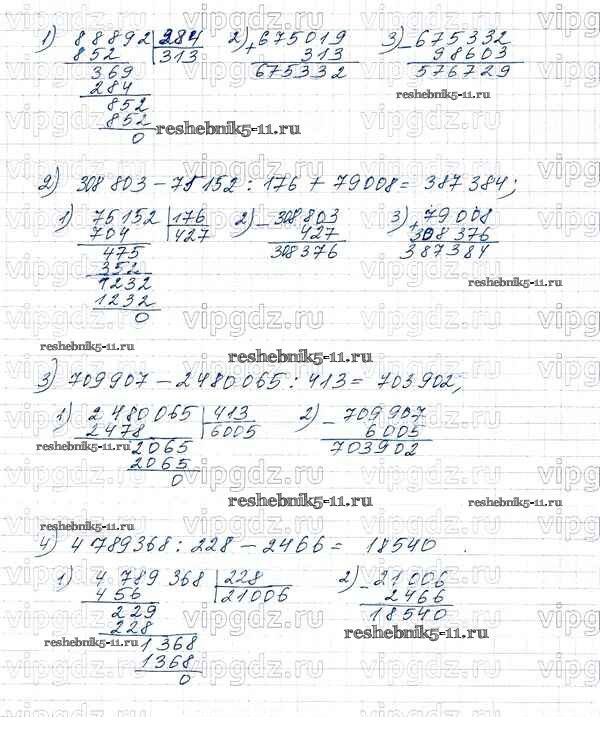 1) 88892 284 2) 675019 3) 675332
852 313 + 313 - 98603
369 675332 576729
284
852
852
0
reshebnik5-11.ru
reshebnik5-11.ru
2) 308 803 - 75 152 : 176 + 79008 = 387 384;
1) 75152 176 2) - 308 803 3) + 79 008
704 427 427 308 376
475 308 376 387384
352
1232
1232
0
reshebnik5-11.ru
reshebnik5-11.ru
3) 709907 - 2480065 : 413 = 703902;
1) 2480065 413 2) - 709907
2478 6005 6005
2065 703902
2065
0
reshebnik5-11.ru
reshebnik5-11.ru
reshebnik5-11.ru
reshebnik5-11.ru
4) 4 789368 : 228 - 2466 = 18540.
1) 4 789 368 228 2) - 21006
456 21006 2466
229 18540
228
1368
1368
0
reshebnik5-11.ru
reshebnik5-11.ru
vipgdz.ru